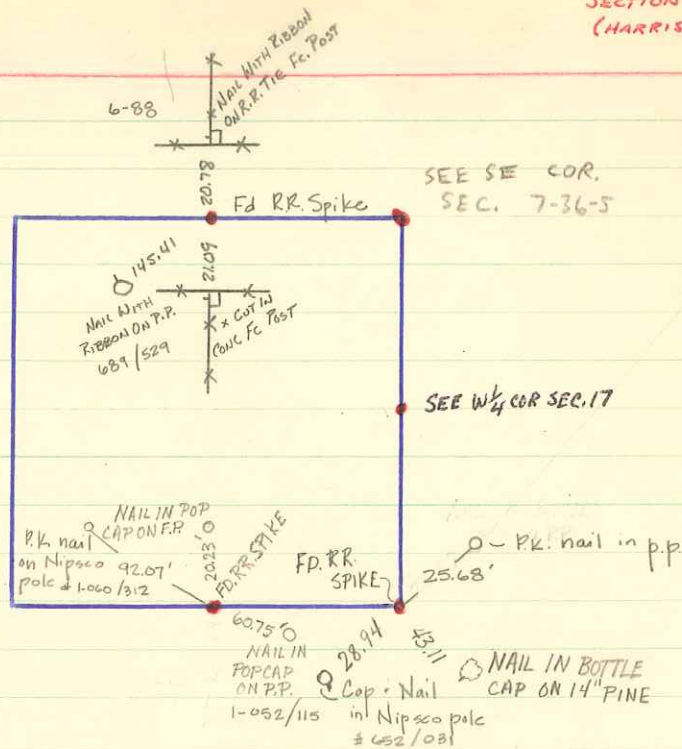 SECTION
(HARRIS
6-88
NAIL WITH RIBBON
ON R.R. TIE FC. POST
20.78
Fd R.R. Spike
SEE SE COR.
SEC. 7-36-5
21.09
145.41
NAIL WITH
RIBBON ON P.P.
689/529
x CUT IN
CONC FC POST
SEE W 1/4 COR SEC. 17
NAIL IN POP
CAP ON F.P.
20.23'
FD. R.R. SPIKE
P.K. nail
on Nipsco
pole # 1-060/312
92.07'
FD. RR.
SPIKE
P.K. nail in p.p.
25.68'
60.75'
NAIL IN
POPCAP
ON P.P.
1-052/115
28.94
Cap & Nail
in Nipsco pole
# 652/031
43.11
NAIL IN BOTTLE
CAP ON 14" PINE